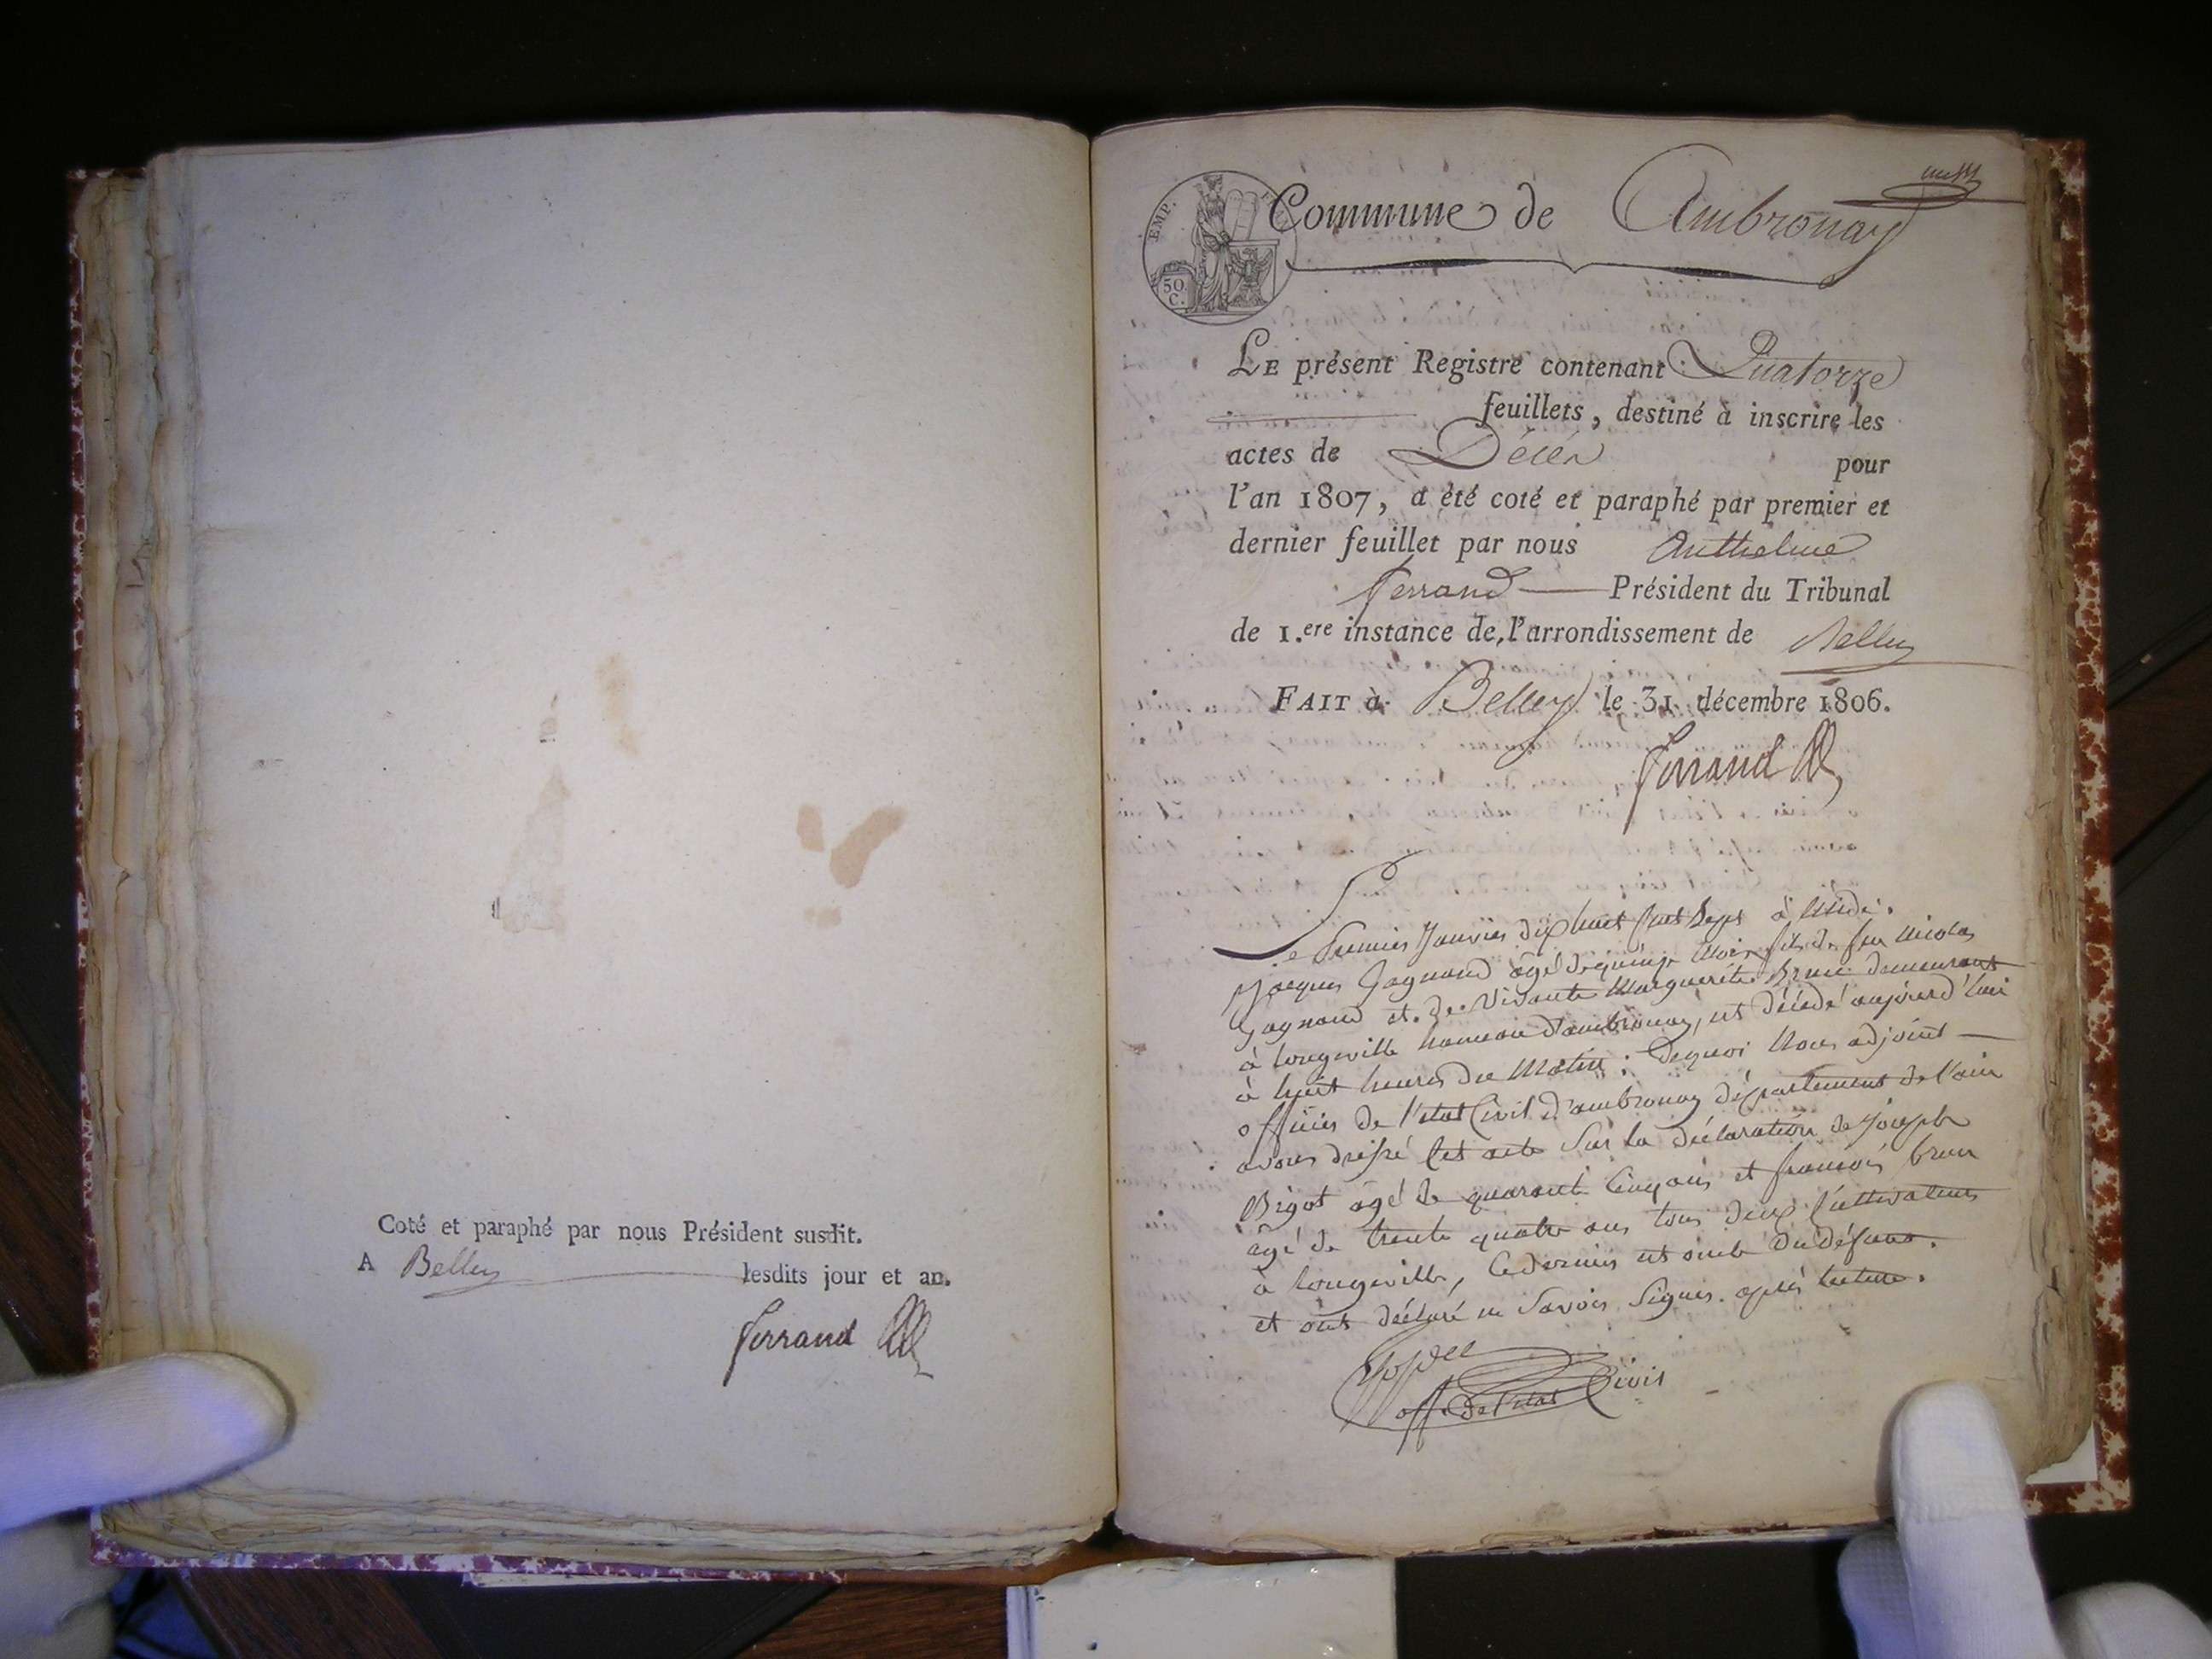 Coté et paraphé par nous Président susdit.
A Belley lesdits jour et an.
Ferrand
EMP.
50
C.
Commune de Ambronay
LE présent Registre contenant Quatorze
feuillets, destiné à inscrire les
actes de Décès pour
l'an 1807, a été coté et paraphé par premier et
dernier feuillet par nous Anthelme
ferrand Président du Tribunal
de 1.ere instance de l'arrondissement de Belley
FAIT à Belley le 31 décembre 1806.
Ferrand
Le Premier Janvier dix huit Cent Sept à Midi.
Jacques Gagnand âgé de quinze Mois fils de feu Nicolas
Gagnand et de Vivante Marguerite demeurant
à longeville hameau d'ambronay, est décédé aujourd'hui
à huit heures du Matin; Dequoi Nous adjoint
officier de l'etat Civil d'ambronay département de l'ain
avons dressé Cet acte Sur la déclaration de Joseph
Bigot âgé de quarante Cinq ans et françois brun
âgé de trente quatre ans tous deux Cultivateurs
à longeville, Ce dernier est oncle du défunt.
et ont déclaré ne Savoir Signer. après lecture.
off. de l'etat Civil